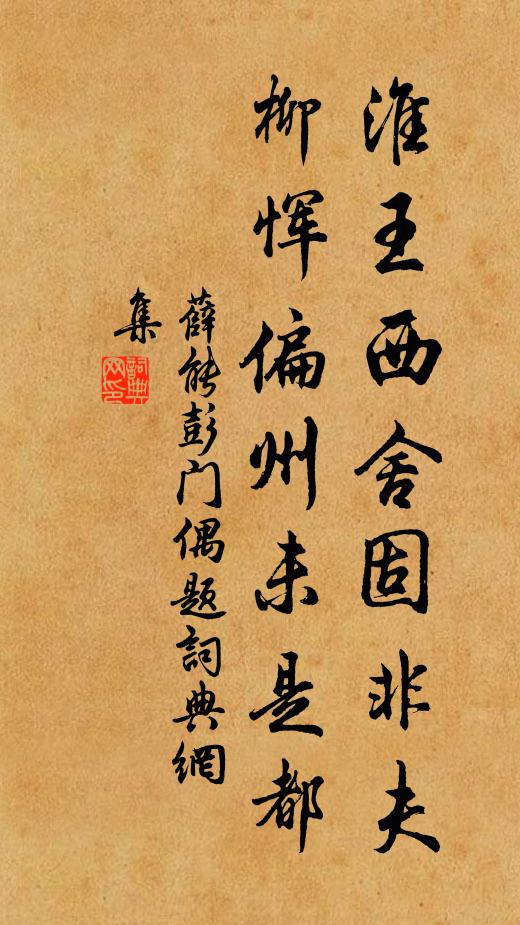 淮王西舍固非夫
柳恽偏州未是都
薛能彭门偶题詞典網
集
詞典
网印